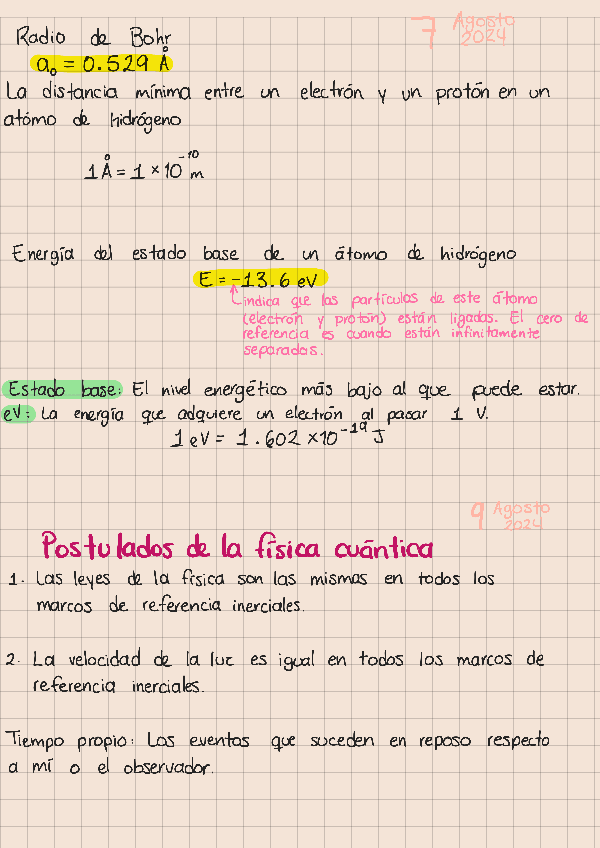 7 Agosto
2024
Radio de Bohr
a₀ = 0.529 Å
La distancia mínima entre un electrón y un protón en un
atómo de hidrógeno
1 Å = 1 × 10⁻¹⁰ m
Energía del estado base de un átomo de hidrógeno
E = -13.6 eV
indica que las partículas de este átomo
(electrón y protón) están ligadas. El cero de
referencia es cuando están infinitamente
separadas.
Estado base: El nivel energético más bajo al que puede estar.
eV: La energía que adquiere un electrón al pasar 1 V.
1 eV = 1.602 ×10⁻¹⁹ J
9 Agosto
2024
Postulados de la física cuántica
1. Las leyes de la física son las mismas en todos los
marcos de referencia inerciales.
2. La velocidad de la luz es igual en todos los marcos de
referencia inerciales.
Tiempo propio: Los eventos que suceden en reposo respecto
a mí o el observador.